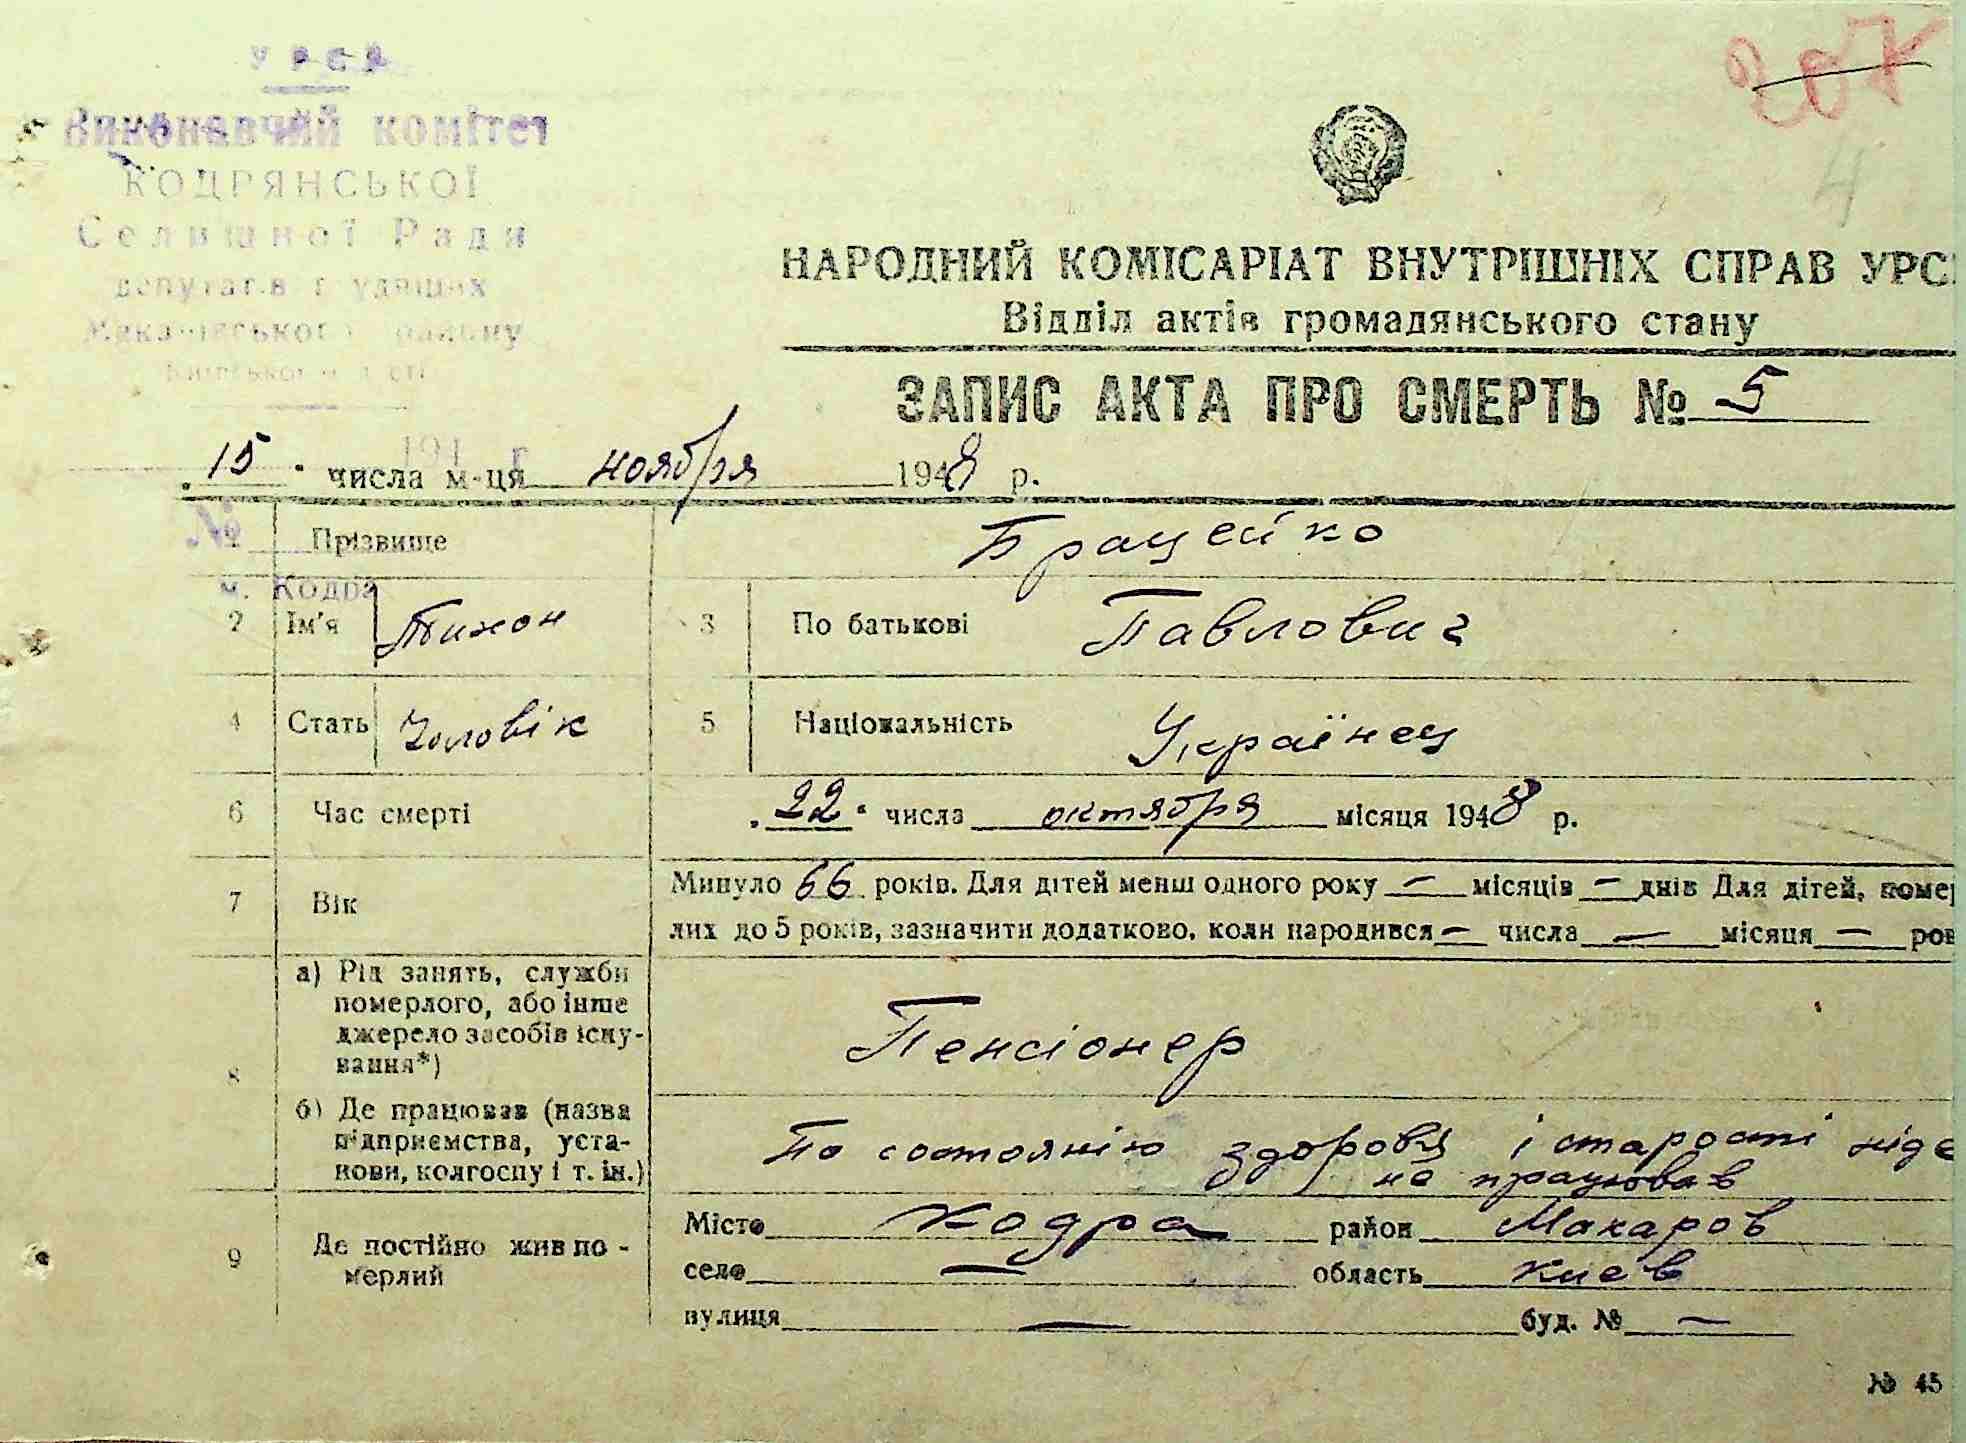 УРСР
Виконавчий комітет
КОДРЯНСЬКОЇ
Селищної Ради
депутатів трудящих
Макарівського району
Київської області
207
4
НАРОДНИЙ КОМІСАРІАТ ВНУТРІШНІХ СПРАВ УРС
Відділ актів громадянського стану
ЗАПИС АКТА ПРО СМЕРТЬ № 5
194 г
„15“ числа м-ця ноября 1948 р.
№
1 Прізвище Брацейко
м. Кодра
2 Ім'я Тихон 3 По батькові Павлович
4 Стать Чоловік 5 Національність Українец
6 Час смерті „22“ числа октября місяця 1948 р.
7 Вік Минуло 66 років. Для дітей менш одного року — місяців — днів Для дітей, помер
лих до 5 років, зазначити додатково, коли народився — числа — місяця — ров
8 а) Рід занять, служби
померлого, або інше
джерело засобів існу-
вання*)
Пенсіонер
б) Де працював (назва
підприємства, уста-
нови, колгоспу і т. ін.)
По состоянію здоровя і старості ніде
не працював
9 Де постійно жив по-
мерлий
Місто Кодра район Макаров
село — область Киев
вулиця — буд. № —
№ 45